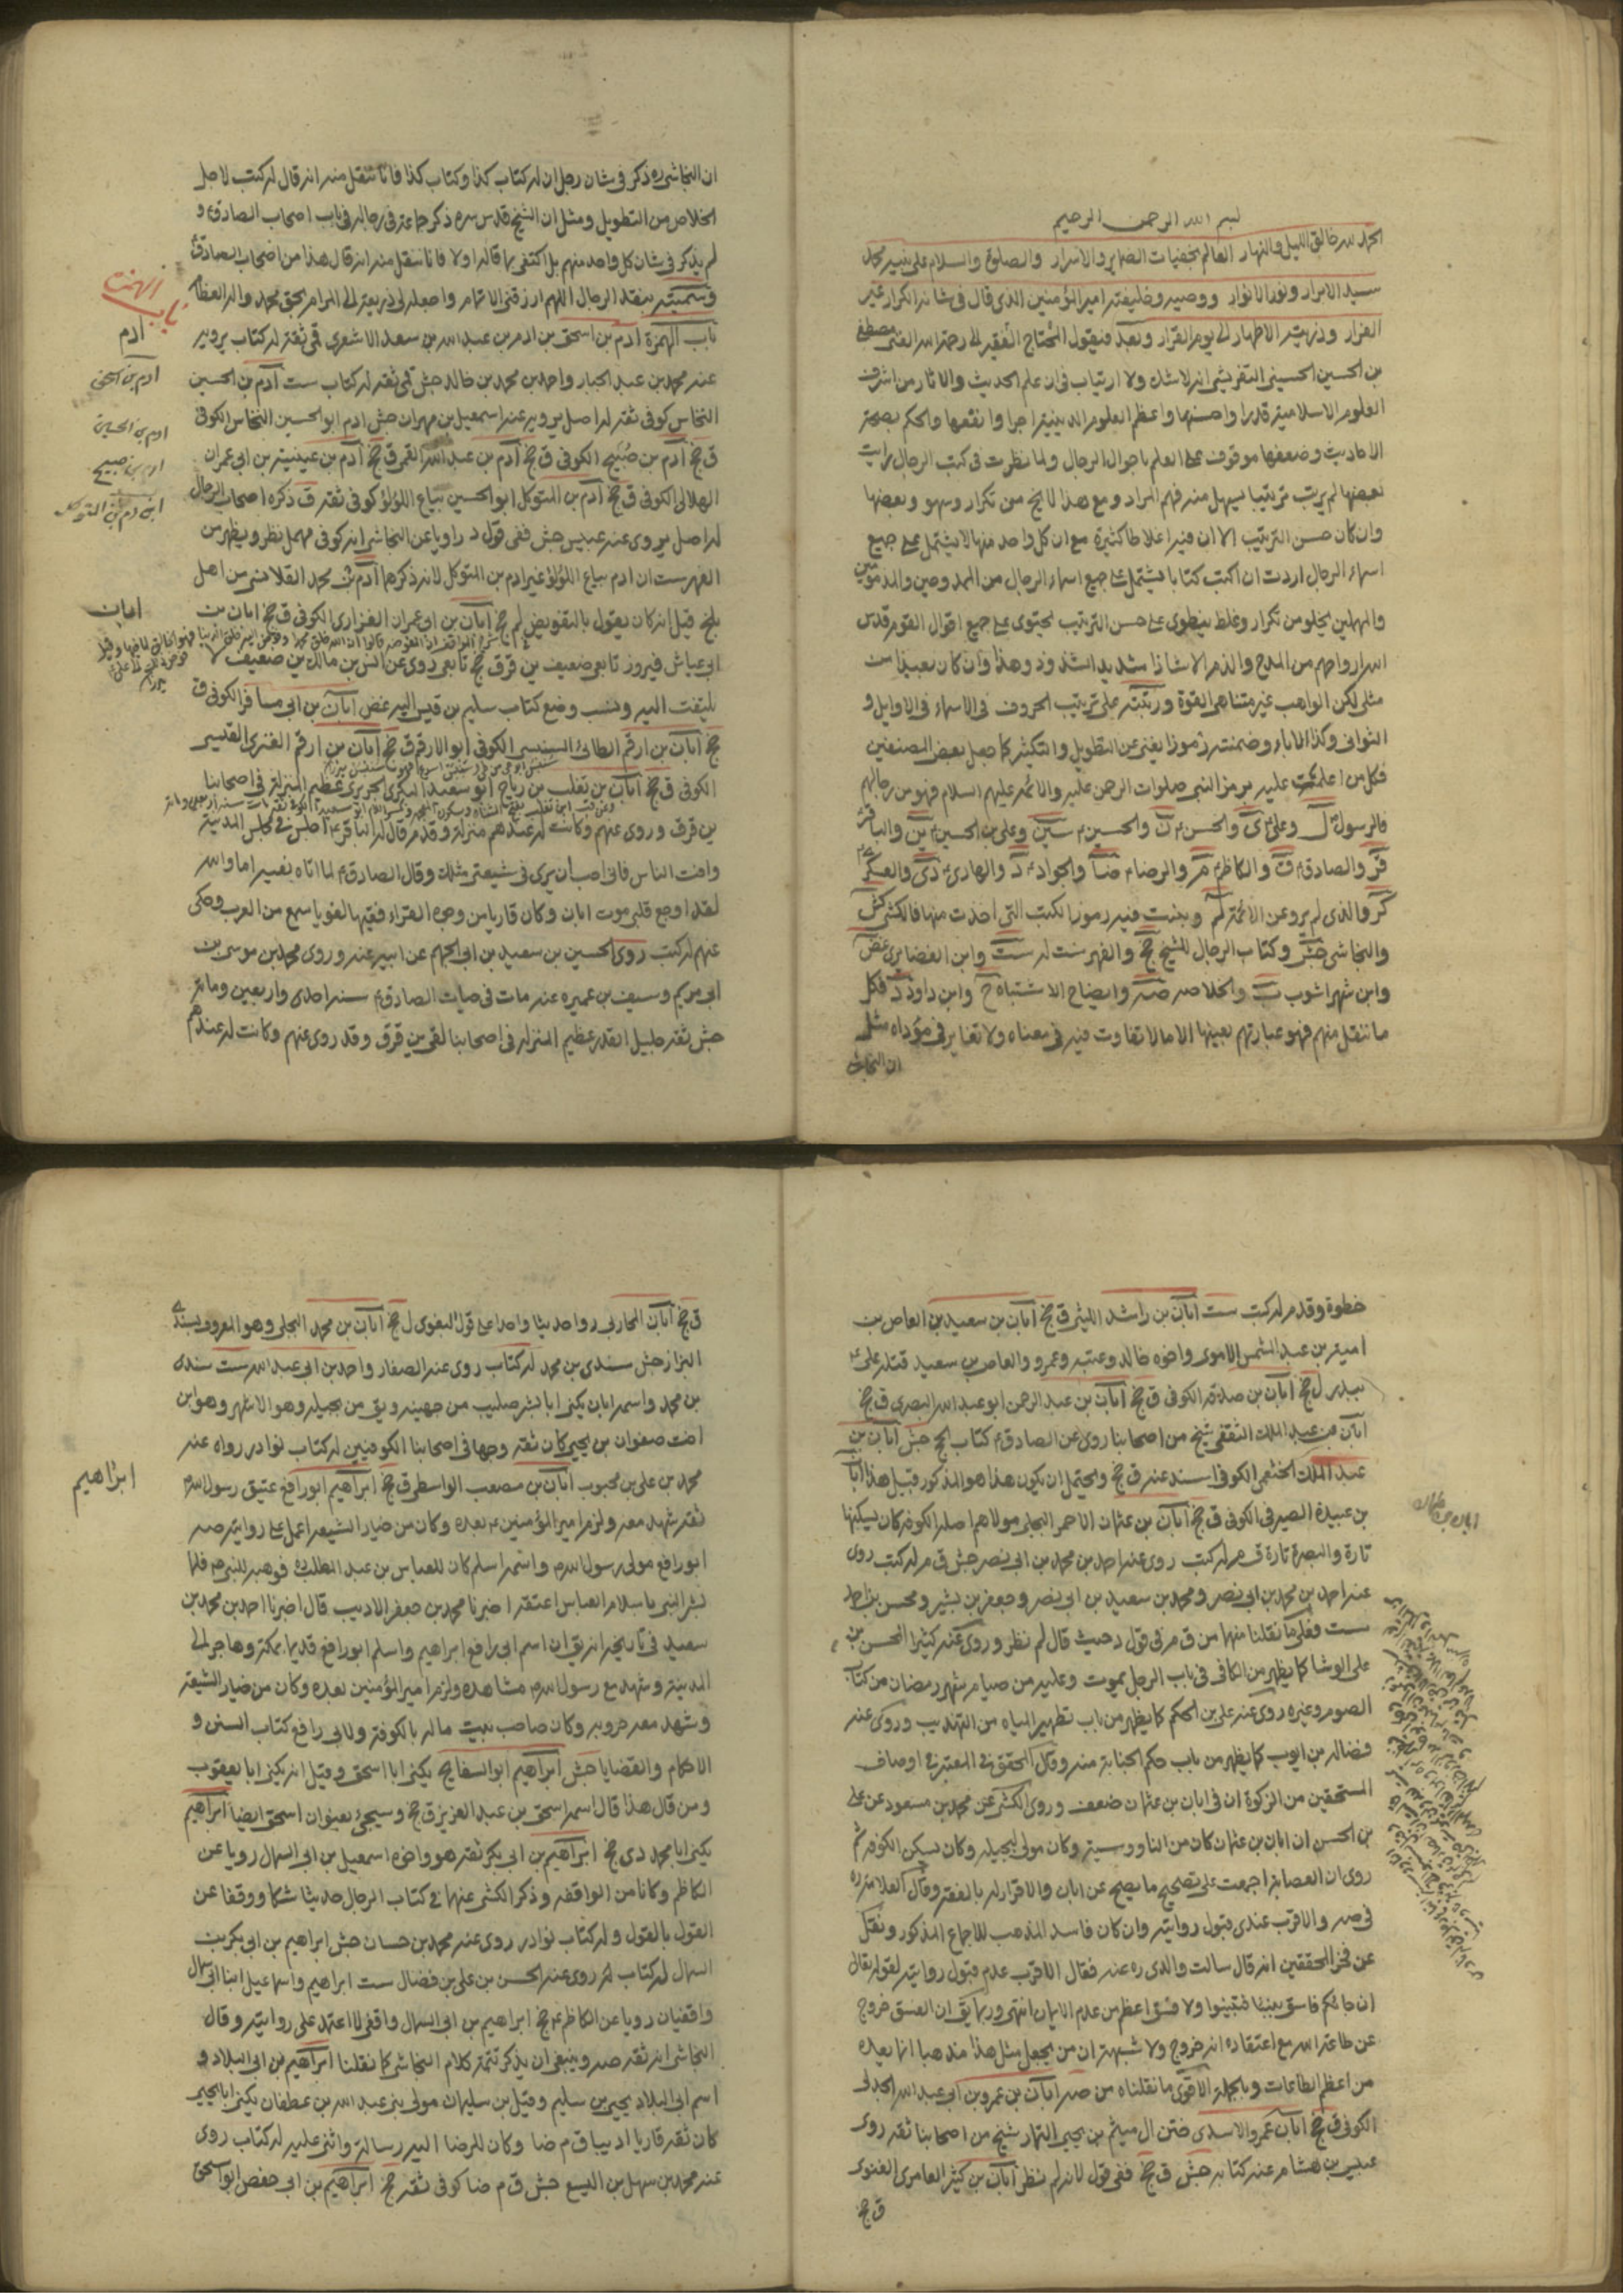 بسم الله الرحمن الرحيم
الحمد لله خالق الليل والنهار العالم بخفيات الضماير والاسرار والصلوة والسلام على نبيه محمد
سيد الابرار ونور الانوار ووصيه وخليفته امير المؤمنين الذى قال فى شانه الكرار غير
الفرار وذريته الاطهار الى يوم القرار وبعد فيقول المحتاج الفقير الى رحمة الله الغنى مصطفى
بن الحسين الحسينى التفريشى انه لا شك ولا ارتياب فى ان علم الحديث والاثار من اشرف
العلوم الاسلامية قدرا واحسنها واعظم العلوم الدينية اجرا وانفعها والحكم بصحة
الاحاديث وضعفها موقوف على العلم باحوال الرجال ولما نظرت فى كتب الرجال رايت
بعضها لم يرتب ترتيبا يسهل منه فهم المراد ومع هذا لا يخ من تكرار وسهو وبعضها
وان كان حسن الترتيب الا ان فيه اغلاطا كثيرة مع ان كل واحد منها لا يشتمل على جميع
اسماء الرجال اردت ان اكتب كتابا يشتمل على جميع اسماء الرجال من الممدوحين والمذمومين
والمهملين يخلو من تكرار وغلط ينطوى على حسن الترتيب يحتوى على جميع اقوال القوم قدس
الله ارواحهم من المدح والذم الا شاذا شديد الشذوذ وهذا وان كان بعيدا من
مثلى لكن الواهب غير متناهى القوة ورتبته على ترتيب الحروف فى الاسماء فى الاوايل و
الثوانى وكذا الاباء وضمنت رموزا يغنى عن التطويل والتكثير كما جعل بعض المصنفين
فكل من اعلمت عليه برمز النبى صلوات الرحمن عليه والائمة عليهم السلام فهو من رجالهم
فالرسول ل وعلى ى والحسن ن والحسين سين وعلى بن الحسين ين والباقر
قر والصادق ق والكاظم م والرضا ضا والجواد د والهادى دى والعسكرى
كر والذى لم يرو عن الائمة لم وبينت فيه رموز الكتب التى اخذت منها فالكشى كش
والنجاشى جش وكتاب الرجال للشيخ جخ والفهرست له ست وابن الغضايرى غض
وابن شهراشوب ب والخلاصه صه وايضاح الاشتباه ح وابن داود د فكل
ما ننقل منهم فهو عبارتهم بعينها الا ما لا تفاوت فيه فى معناه ولا تغاير فى مؤداه مثل
ان النجاشى
ان النجاشى ره ذكر فى شان رجل ان له كتاب كذا وكتاب كذا فانا ننقل منه انه قال له كتب لاجل
الخلاص من التطويل ومثل ان الشيخ قدس سره ذكر جماعة فى رجاله فى باب اصحاب الصادق و
لم يذكر فى شان كل واحد منهم بل اكتفى بما قاله اولا فانا ننقل منه انه قال هذا من اصحاب الصادق
وسميته بنقد الرجال اللهم ارزقنى الاتمام واجعله لى ذريعة الى المرام بحق محمد واله العظام
باب الهمزة ادم بن اسحق بن ادم بن عبد الله بن سعد الاشعرى قمى ثقة له كتاب يرويه
عنه محمد بن عبد الجبار واحمد بن محمد بن خالد جش قمى ثقه له كتاب ست آدم بن الحسين
النخاس كوفى ثقة له اصل يرويه عنه اسمعيل بن مهران جش ادم ابو الحسين النخاس الكوفى
ق جخ آدم بن صبيح الكوفى ق جخ آدم بن عبد الله القمى ق جخ آدم بن عيينة بن ابى عمران
الهلالى الكوفى ق جخ آدم بن المتوكل ابو الحسين بياع اللؤلؤ كوفى ثقة ق ذكره اصحاب الرجال
له اصل روى عنه عبيس جش ففى قول د راويا عن النجاشى انه كوفى مهمل نظر ويظهر من
الفهرست ان ادم بياع اللؤلؤ غير ادم بن المتوكل لانه ذكرهما آدم بن محمد القلانسى من اهل
بلخ قيل انه كان يقول بالتفويض لم جخ ابان بن ابى عمران الفزارى الكوفى ق جخ ابان بن
ابى عياش فيروز تابعى ضعيف ين قر ق جخ تابعى روى عن انس بن مالك ين ضعيف لا
يلتفت اليه وينسب وضع كتاب سليم بن قيس اليه غض ابان بن ابى مسافر الكوفى ق
جخ ابان بن ارقم الطائى السنبسى الكوفى ابو الارقم ق جخ ابان بن ارقم العنزى القيسى
الكوفى ق جخ ابان بن تغلب بن رياح ابو سعيد البكرى الجريرى عظيم المنزلة فى اصحابنا
ين قر ق وروى عنهم وكانت له عندهم منزلة وقدم قال له الباقر اجلس فى مجلس المدينة
وافت الناس فانى احب ان يرى فى شيعتى مثلك وقال الصادق لما اتاه نعيه اما والله
لقد اوجع قلبى موت ابان وكان قاريا من وجوه القراء فقيها لغويا سمع من العرب وحكى
عنهم له كتب روى الحسين بن سعيد بن ابى الجهم عن ابيه عنه وروى محمد بن موسى بن
ابى مريم وسيف بن عميره عنه مات فى حيات الصادق سنه احدى واربعين وماية
جش ثقه جليل القدر عظيم المنزله فى اصحابنا لقى ين قر ق وقد روى عنهم وكانت له عندهم
باب الهمزة
ادم
ادم بن اسحق
ادم بن الحسين
ادم بن صبيح
ادم بن المتوكل
ابان
خطوة وقدم له كتب ست ابان بن راشد الليثى ق جخ ابان بن سعيد بن العاص بن
امية بن عبد الشمس الاموى واخوه خالد وعتبه وعمرو والعاص بن سعيد قتله على
ببدر ل جخ ابان بن صدقه الكوفى ق جخ ابان بن عبد الرحمن ابو عبد الله البصرى ق جخ
ابان بن عبد الملك الثقفى شيخ من اصحابنا روى عن الصادق كتاب الحج جش ابان بن
عبد الملك الخثعمى الكوفى اسند عنه ق جخ ويحتمل ان يكون هذا هو المذكور قبيل هذا ابان
بن عبيدة الصيرفى الكوفى ق جخ ابان بن عثمان الاحمر البجلى مولاهم اصله الكوفه كان يسكنها
تارة والبصرة تارة ق م له كتب روى عنه احمد بن محمد بن ابى نصر جش ق م له كتب روى
عنه احمد بن محمد بن ابى نصر ومحمد بن سعيد بن ابى نصر وجعفر بن بشير ومحسن بن احمد
ست وفعلى ما نقلنا منها من ق م فى قول د حيث قال لم نظر وروى عنه كثيرا الحسن بن
على الوشا كما يظهر من الكافى فى باب الرجل يموت وعليه من صيام شهر رمضان من كتاب
الصوم وغيره روى عنه على بن الحكم كما يظهر من باب تطهير المياه من التهذيب وروى عنه
فضاله بن ايوب كما يظهر من باب حكم الجنابة منه وقال المحقق فى المعتبر فى اوصاف
المستحقين من الزكوة ان فى ابان بن عثمان ضعف وروى الكشى عن محمد بن مسعود عن على
بن الحسن ان ابان بن عثمان كان من الناووسية وكان مولى لبجيله وكان يسكن الكوفه ثم
روى ان العصابة اجمعت على تصحيح ما يصح عن ابان والاقرار له بالفقه وقال العلامة ره
فى صه والاقرب عندى قبول روايته وان كان فاسد المذهب للاجماع المذكور ونقل
عن فخر المحققين انه قال سالت والدى ره عنه فقال الاقرب عدم قبول روايته لقوله تعالى
ان جائكم فاسق بنبا فتبينوا ولا فسق اعظم من عدم الايمان انتهى وربما يق ان الفسق خروج
عن طاعة الله مع اعتقاده انه خروج ولا شبهة ان من يجعل مثل هذا مذهبا انما يعده
من اعظم الطاعات وبالجملة الاقوى ما نقلناه من صه ابان بن عمرو بن ابى عبد الله الجدلى
الكوفى ق جخ ابان عمرو الاسدى ختن ال ميثم بن يحيى التمار شيخ من اصحابنا ثقه روى
عبيس بن هشام عنه كتابه جش ق جخ ففى قول لانه لم نظر ابان بن كثير العامرى الغنوى
ق جخ
ابان بن عثمان
ق جخ ابان المحاربى روا حديثا واحدا على قول البغوى ل جخ ابان بن محمد البجلى وهو المعروف بسندى
البزاز جش سندى بن محمد له كتاب روى عنه الصفار واحمد بن ابى عبد الله ست سندى
بن محمد واسمه ابان يكنى ابا بشر صليب من جهينه ويق من بجيله وهو الاشهر وهو ابن
اخت صفوان بن يحيى كان ثقه وجها فى اصحابنا الكوفيين له كتاب نوادر رواه عنه
محمد بن على بن محبوب ابان بن مصعب الواسطى ق جخ ابراهيم ابو رافع عتيق رسول الله
ثقه شهد معه ولزم امير المؤمنين بعده وكان من خيار الشيعه اعمل على روايته صه
ابو رافع مولى رسول الله واسمه اسلم كان للعباس بن عبد المطلب ره فوهبه للنبى فلما
بشر النبى باسلام العباس اعتقه اخبرنا محمد بن جعفر الاديب قال اخبرنا احمد بن محمد بن
سعيد فى تاريخه انه يق ان اسم ابى رافع ابراهيم واسلم ابو رافع قديما بمكة وهاجر الى
المدينة وشهد مع رسول الله مشاهده ولزم امير المؤمنين بعده وكان من خيار الشيعة
وشهد معه حروبه وكان صاحب بيت ماله بالكوفة ولابى رافع كتاب السنن و
الاحكام والقضايا جش ابراهيم ابو السفايج يكنى ابا اسحق وقيل انه يكنى ابا يعقوب
ومن قال هذا قال اسمه اسحق بن عبد العزيز ق جخ وسيجئ بعنوان اسحق ايضا ابراهيم
يكنى ابا محمد دى جخ ابراهيم بن ابى بكر ثقه هو واخوه اسمعيل بن ابى السمال رويا عن
الكاظم وكانا من الواقفه وذكر الكشى عنهما فى كتاب الرجال حديثا شكا ووقفا عن
القول بالوقف وله كتاب نوادر روى عنه محمد بن حسان جش ابراهيم بن ابى بكر بن
السمال له كتاب روى عنه الحسن بن على بن فضال ست ابراهيم واسماعيل ابنا ابى سمال
واقفيان رويا عن الكاظم جخ ابراهيم بن ابى السمال واقفى لا اعتمد على روايته وقال
النجاشى انه ثقه صه وينبغى ان يذكر تتمة كلام النجاشى كما نقلنا ابراهيم بن ابى البلاد و
اسم ابى البلاد يحيى بن سليم وقيل بن سليمان مولى بنى عبد الله بن غطفان يكنى ابا يحيى
كان ثقه قاريا اديبا ق م ضا وكان للرضا اليه رسالة واثنى عليه له كتاب روى
عنه محمد بن سهل بن اليسع جش ق م ضا كوفى ثقه جخ ابراهيم بن ابى حفص ابو اسحق
ابراهيم